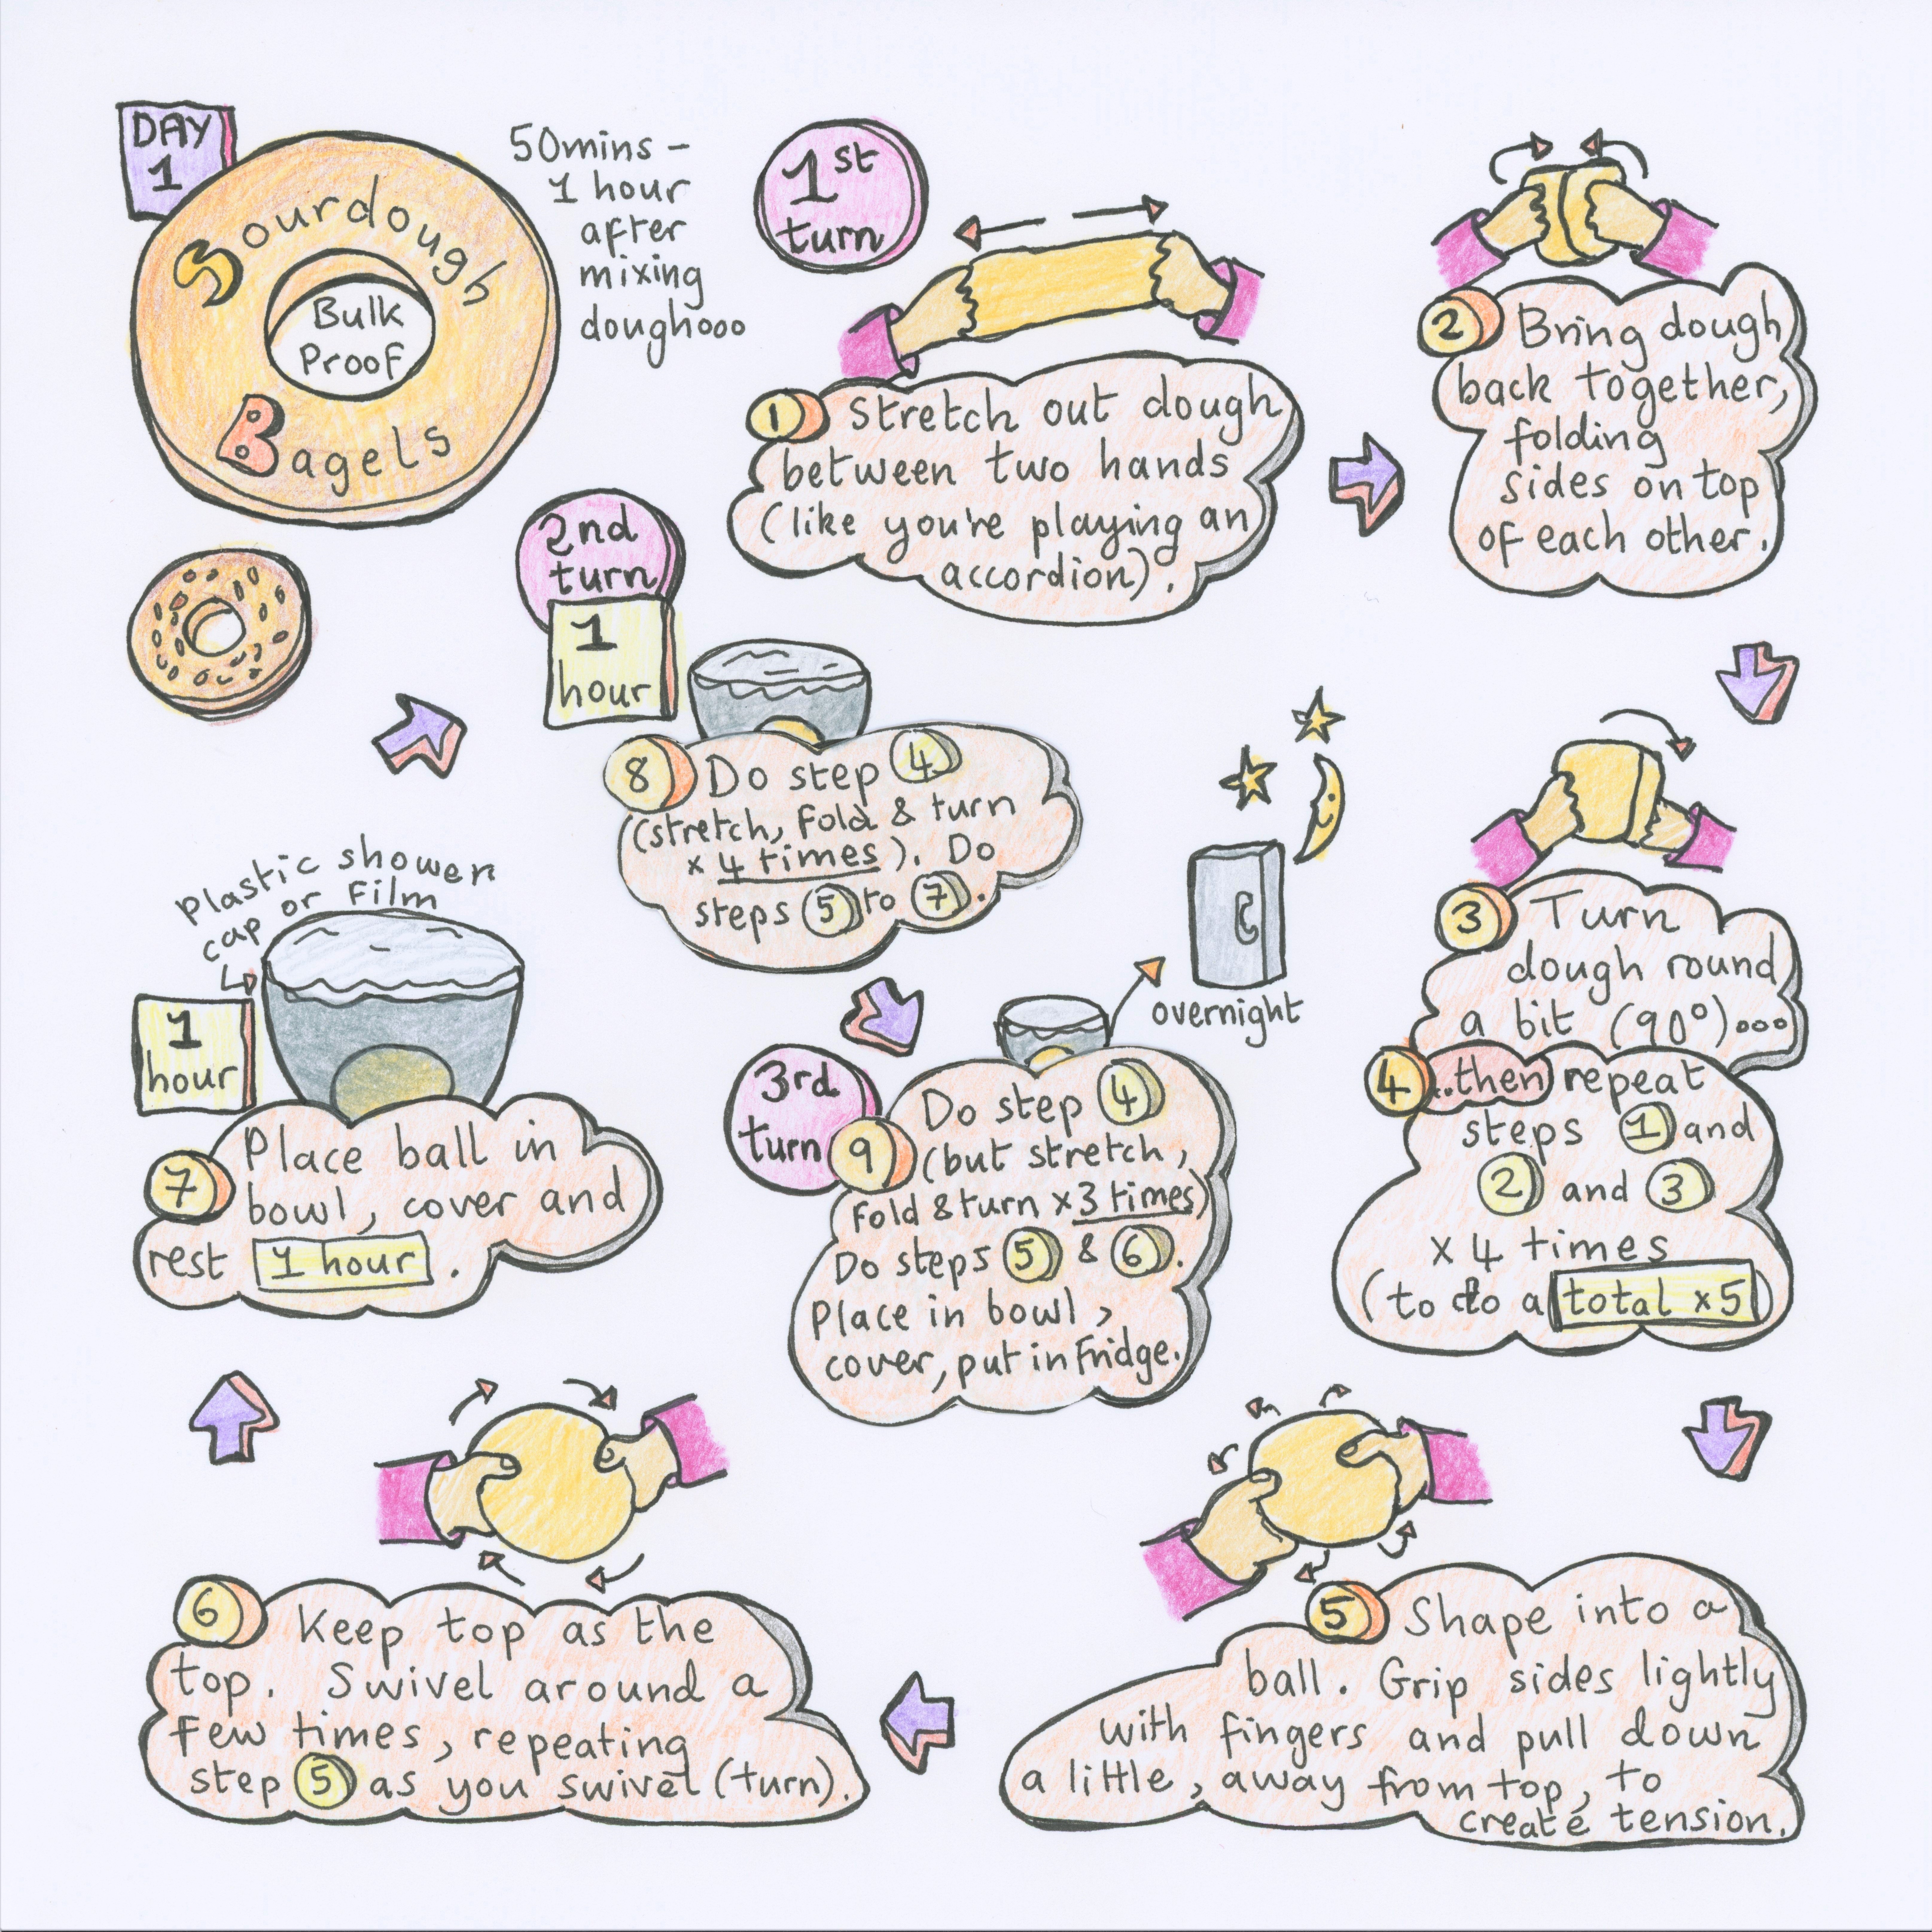 DAY
1
Sourdough
Bulk
Proof
Bagels
50mins -
1 hour
after
mixing
doughooo
1st
turn
1 Stretch out dough
between two hands
(like you're playing an
accordion).
2 Bring dough
back together,
folding
sides on top
of each other.
3 Turn
dough round
a bit (90°)ooo
4 ..then repeat
steps 1 and
2 and 3
x 4 times
(to do a total x5)
5 Shape into a
ball. Grip sides lightly
with fingers and pull down
a little, away from top, to
create tension.
6 Keep top as the
top. Swivel around a
few times, repeating
step 5 as you swivel (turn).
Plastic shower
cap or film
1
hour
7 Place ball in
bowl, cover and
rest 1 hour.
2nd
turn
1
hour
8 Do step 4
(stretch, fold & turn
x 4 times). Do
steps 5 to 7.
3rd
turn
9 Do step 4
(but stretch,
fold & turn x 3 times)
Do steps 5 & 6.
Place in bowl,
cover, put in fridge.
overnight